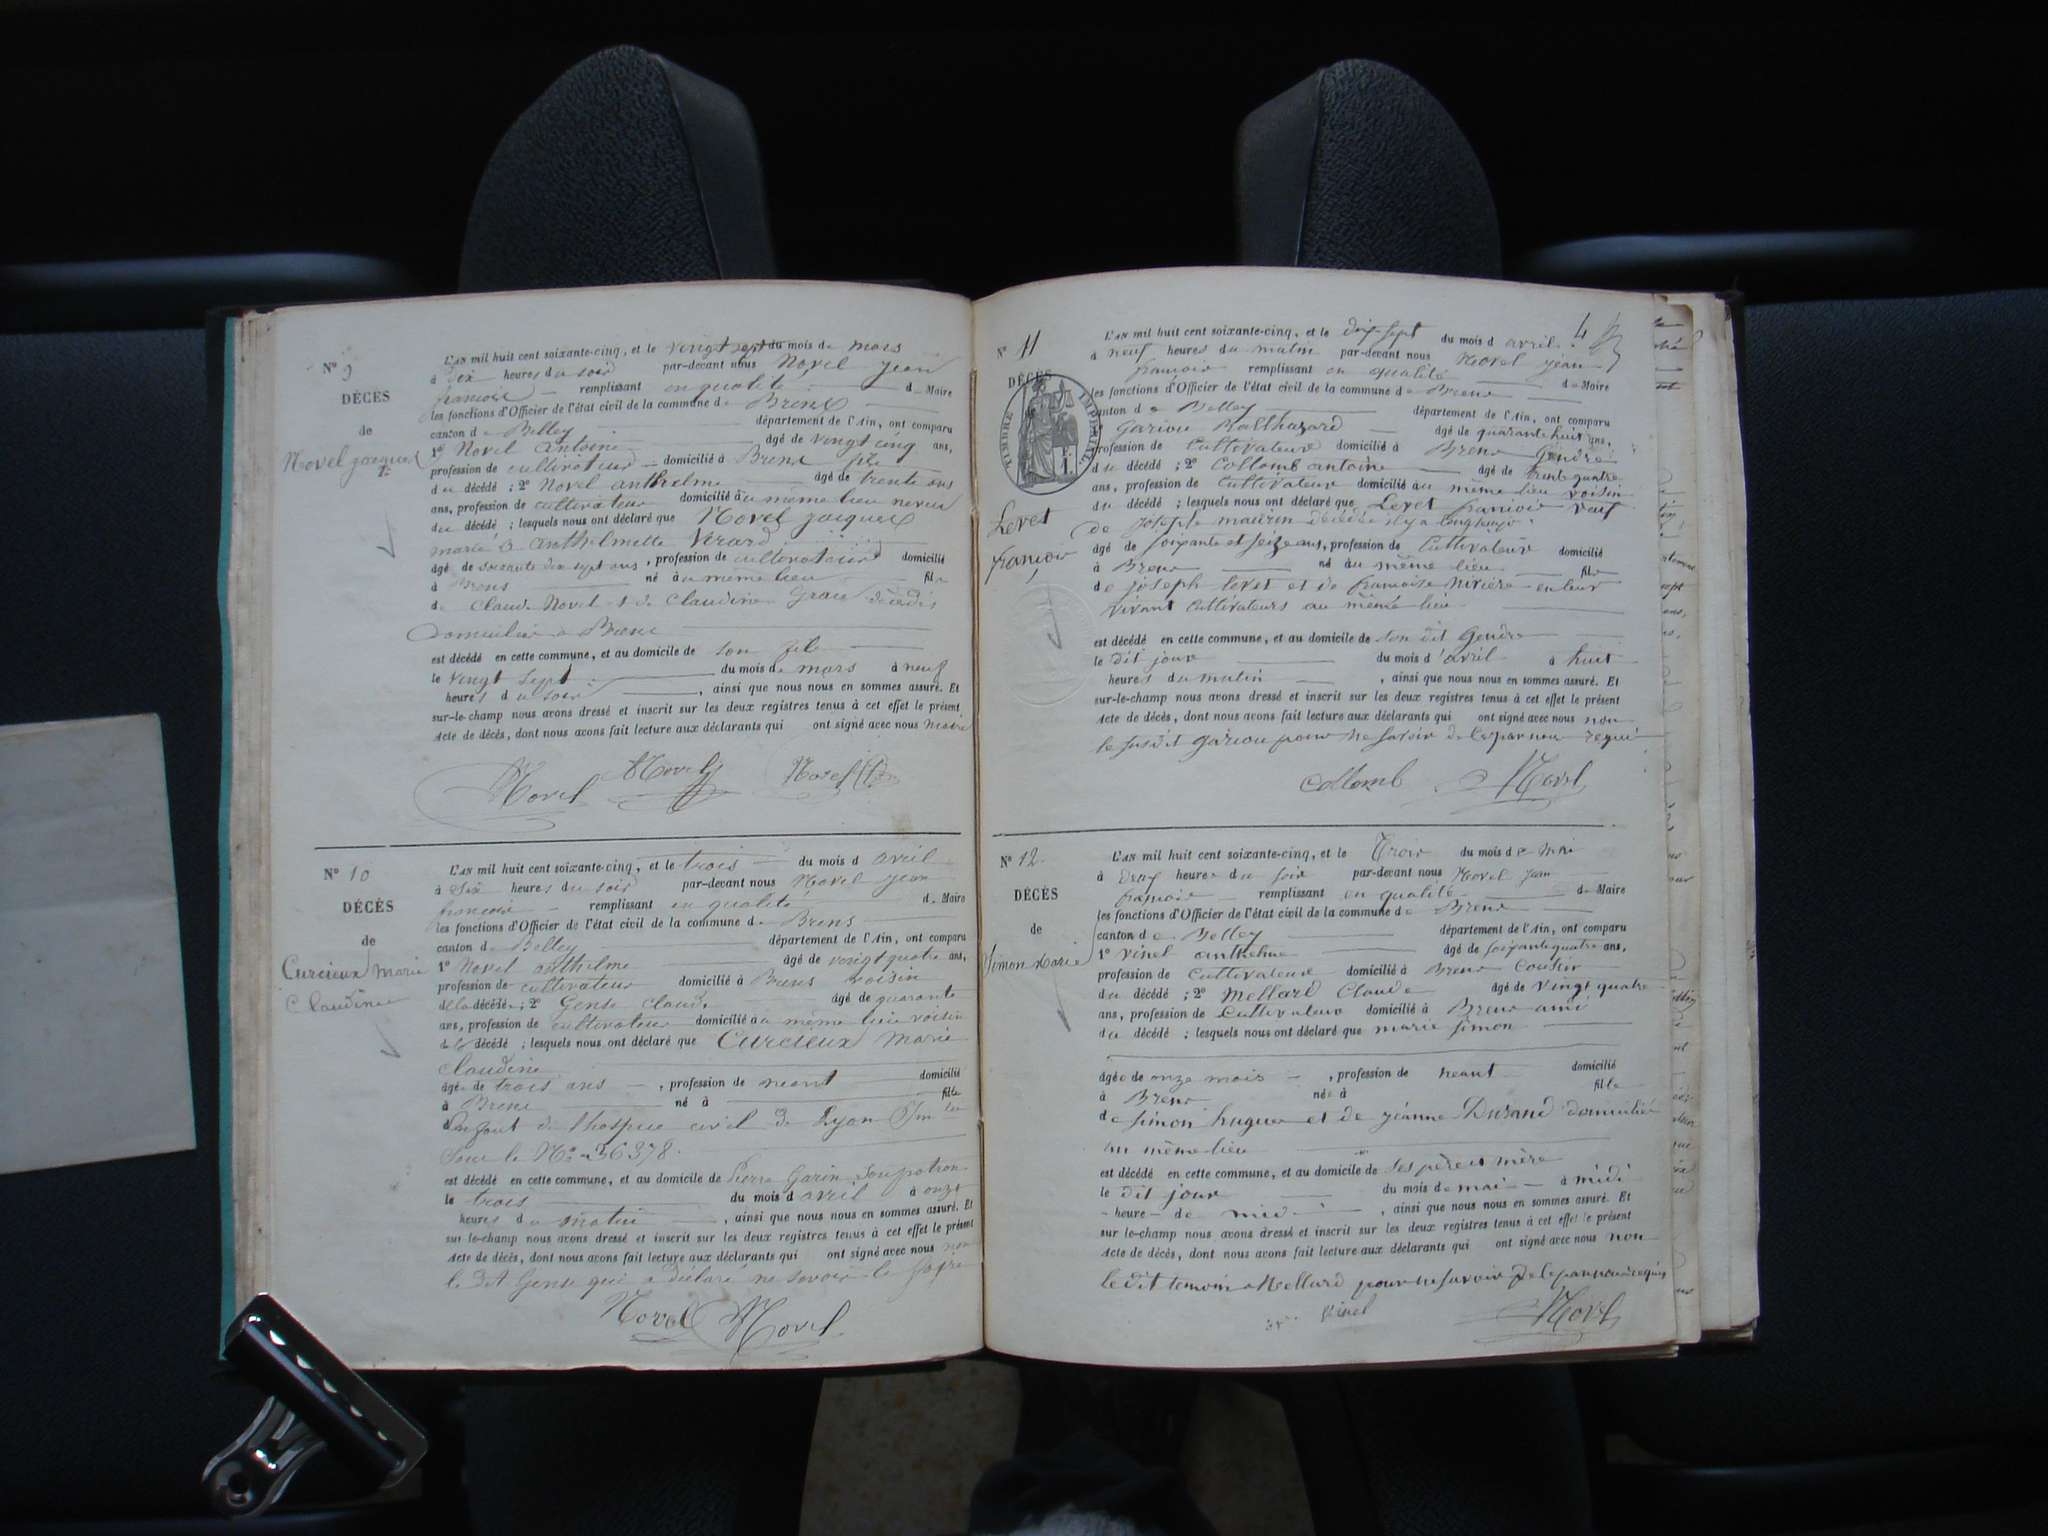 N° 9
DÉCÈS
de
Novel Jacques
L'AN mil huit cent soixante-cinq, et le vingt sept du mois de mars
à dix heures du soir par-devant nous Novel jean
françois remplissant en qualité de Maire
les fonctions d'Officier de l'état civil de la commune de Brens
canton de Belley département de l'Ain, ont comparu
1° Novel Antoine âgé de vingt cinq ans,
profession de cultivateur domicilié à Brens fils
du décédé ; 2° Novel anthelme âgé de trente ans
ans, profession de cultivateur domicilié au même lieu neveu
du décédé ; lesquels nous ont déclaré que Novel jacques
marié à anthelmette Virard
âgé de soixante dix sept ans, profession de cultivateur domicilié
à Brens né au même lieu fils
de Claude Novel et de Claudine décédés
Domiciliés à Brens
est décédé en cette commune, et au domicile de son fils
le vingt sept du mois de mars à neuf
heures du soir, ainsi que nous nous en sommes assuré. Et
sur-le-champ nous avons dressé et inscrit sur les deux registres tenus à cet effet le présent
Acte de décès, dont nous avons fait lecture aux déclarants qui ont signé avec nous maire
Novel Novel Novel
N° 10
DÉCÈS
de
Curcieux Marie
Claudine
L'AN mil huit cent soixante-cinq, et le trois du mois d avril
à six heures du soir par-devant nous Novel jean
françois remplissant en qualité de Maire
les fonctions d'Officier de l'état civil de la commune de Brens
canton de Belley département de l'Ain, ont comparu
1° Novel anthelme âgé de vingt quatre ans,
profession de cultivateur domicilié à Brens voisin
de la décédée ; 2° Gense Claude âgé de quarante
ans, profession de cultivateur domicilié au même lieu voisin
de la décédé ; lesquels nous ont déclaré que Curcieux Marie
Claudine
âgée de trois ans, profession de neant domicilié
à Brens né à fille
Enfant de l'hospice civil de Lyon
sous le N° 36378.
est décédé en cette commune, et au domicile de Pierre Garin son patron
le trois du mois d avril à onze
heures du matin, ainsi que nous nous en sommes assuré. Et
sur le-champ nous avons dressé et inscrit sur les deux registres tenus à cet effet le présent
Acte de décès, dont nous avons fait lecture aux déclarants qui ont signé avec nous non
le dit Gense qui a déclaré ne savoir le faire
Novel Novel
4
N° 11
DÉCÈS
TIMBRE IMPÉRIAL
Levet
françois
L'AN mil huit cent soixante-cinq, et le dix-sept du mois d avril
à neuf heures du matin par-devant nous Novel jean
françois remplissant en qualité de Maire
les fonctions d'Officier de l'état civil de la commune de Brens
canton de Belley département de l'Ain, ont comparu
Gariou Balthazard âgé de quarante huit ans,
profession de Cultivateur domicilié à Brens Gendre
du décédé ; 2° Collomb antoine âgé de trente quatre
ans, profession de Cultivateur domicilié au même lieu voisin
du décédé ; lesquels nous ont déclaré que Levet françois veuf
de Josephte maurin décédée il y a longtemps
âgé de soixante et seize ans, profession de Cultivateur domicilié
à Brens né au même lieu fils
de joseph levet et de françoise Rivière en leur
vivant Cultivateurs au même lieu
est décédé en cette commune, et au domicile de son dit Gendre
le dit jour du mois d'avril à huit
heures du matin, ainsi que nous nous en sommes assuré. Et
sur-le-champ nous avons dressé et inscrit sur les deux registres tenus à cet effet le présent
Acte de décès, dont nous avons fait lecture aux déclarants qui ont signé avec nous non
le susdit Gariou pour ne savoir de ce par nous requi
Collomb Novel
N° 12
DÉCÈS
de
Simon Marie
L'AN mil huit cent soixante-cinq, et le Trois du mois de Mai
à deux heures du soir par-devant nous Novel jean
françois remplissant en qualité de Maire
les fonctions d'Officier de l'état civil de la commune de Brens
canton de Belley département de l'Ain, ont comparu
1° Vinel anthelme âgé de soixante quatre ans,
profession de Cultivateur domicilié à Brens Cousin
du décédé ; 2° Mellard Claude âgé de vingt quatre
ans, profession de Cultivateur domicilié à Brens ami
du décédé ; lesquels nous ont déclaré que marie simon
âgée de onze mois, profession de neant domicilié
à Brens née à fille
de Simon hugue et de jeanne Durand domiciliés
au même lieu
est décédé en cette commune, et au domicile de ses père et mère
le dit jour du mois de mai à midi
heure de midi, ainsi que nous nous en sommes assuré. Et
sur le-champ nous avons dressé et inscrit sur les deux registres tenus à cet effet le présent
Acte de décès, dont nous avons fait lecture aux déclarants qui ont signé avec nous non
le dit temoin Mellard pour ne savoir de ce par nous requis
Vinel Novel